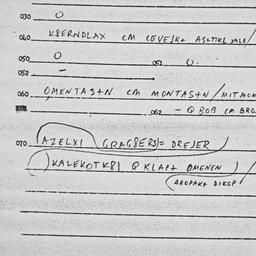 030 0
040 K8ERNDLAX CM CEVEJK+ AS+TIKL YALE/
050 0 051 0.
052 –
060 OMENTAS+N CM MONTAS+N / MITMON
062 – Q BOB CM BRO
070 AZELXI GRAG8ERS)= DREJER
KALEKOTK8I Q KLAP+ OMENEN
AROPAK+ DIKOP